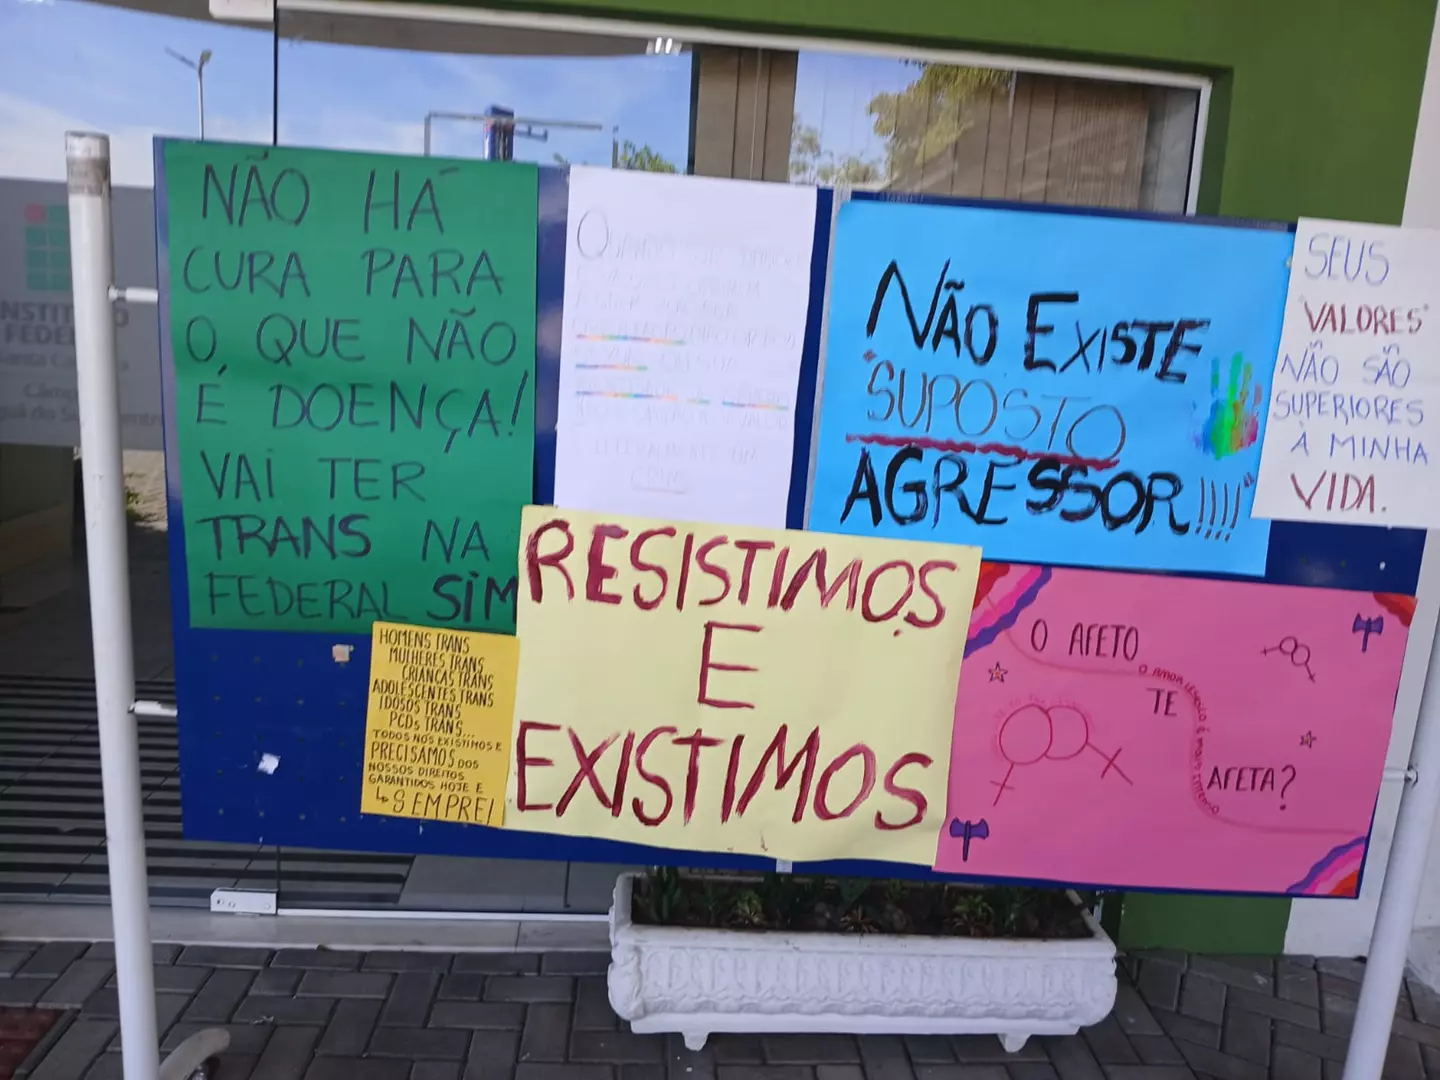 NÃO HÁ
CURA PARA
O QUE NÃO
É DOENÇA!
VAI TER
TRANS NA
FEDERAL SIM
HOMENS TRANS
MULHERES TRANS
CRIANÇAS TRANS
ADOLESCENTES TRANS
IDOSOS TRANS
PCDs TRANS...
TODOS NÓS EXISTIMOS E
PRECISAMOS DOS
NOSSOS DIREITOS
GARANTIDOS HOJE E
↳ SEMPRE!
QUANDO
RESISTIMOS
E
EXISTIMOS
NÃO EXISTE
"SUPOSTO"
AGRESSOR!!!!
SEUS
"VALORES"
NÃO SÃO
SUPERIORES
À MINHA
VIDA.
O AFETO
TE
AFETA?
O AMOR LÉSBICO É
INSTITUTO
FEDERAL
Santa Ca
Câmp